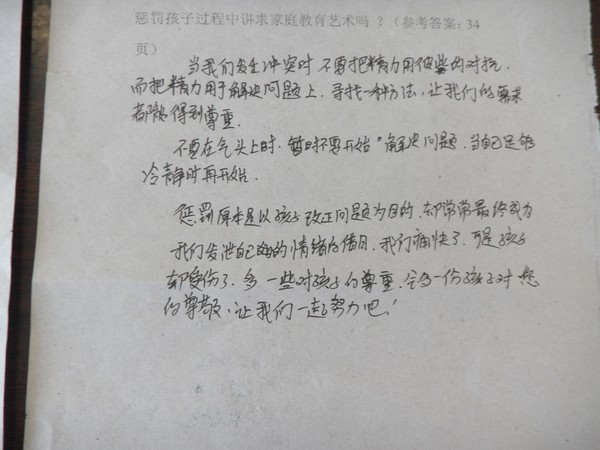 惩罚孩子过程中讲求家庭教育艺术吗？（参考答案:34
页）
当我们发生冲突时不要把精力用在彼此的对抗,
而把精力用于解决问题上。寻找一种方法,让我们的需求
都能得到尊重.
不要在气头上时,暂时不要开始"解决问题.当自己足够
冷静时再开始.
惩罚原本是以孩子改正问题为目的.却常常最终成为
我们发泄自己的情绪的借口.我们痛快了.可是孩子
却受伤了.多一些对孩子的尊重.会多一份孩子对您
的尊敬.让我们一起努力吧!